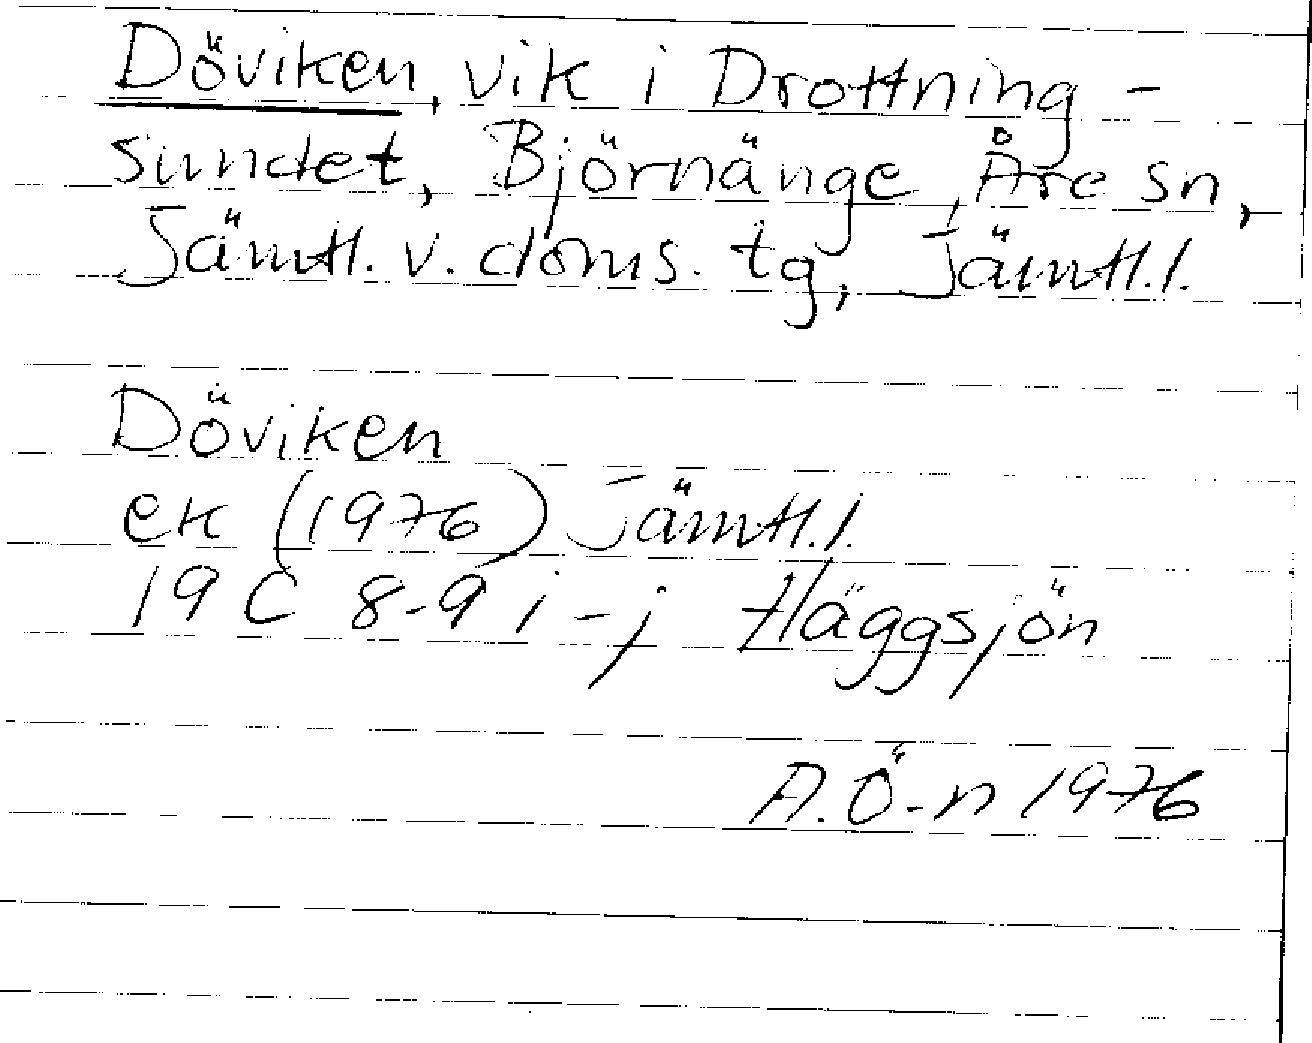 Döviken, vik i Drottning-
sundet, Björnänge, Åre sn,
Jämtl. v. doms. tg, Jämtl.l.
Döviken
ek (1976) Jämtl.l.
19 C 8-9 i-j Häggsjön
A.Ö-n 1976